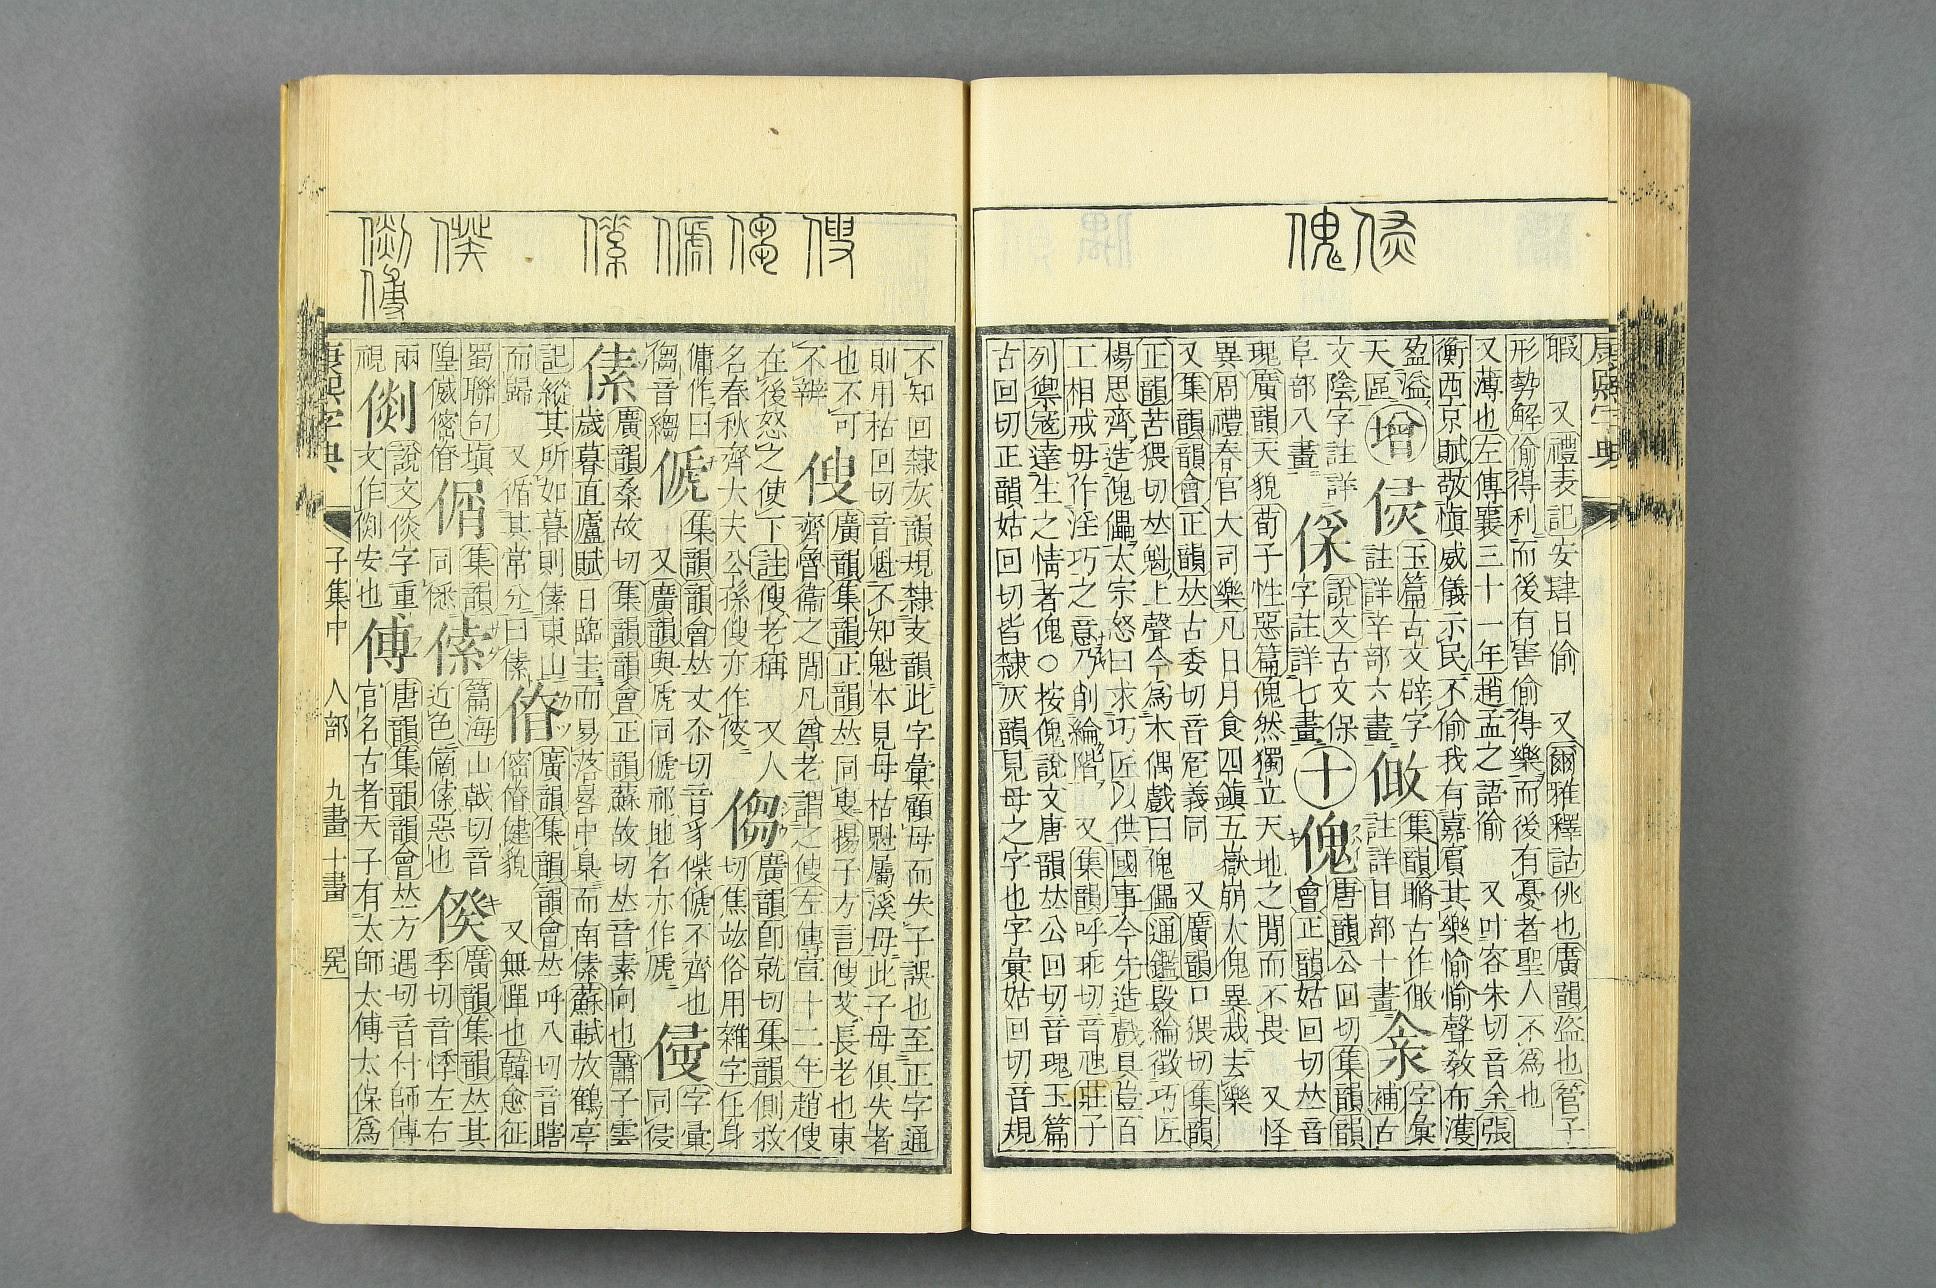 傀
康熙字典
暇 又禮表記安肆日偷 又爾雅釋詁佻也廣韻盜也管子
形勢解偷得利而後有害偷得樂而後有憂者聖人不為也
又薄也左傳襄三十一年趙孟之語偷 又叶容朱切音余張
衡西京賦敬慎威儀示民不偷我有嘉賓其樂愉愉聲敎布濩
盈溢
天區
增
玉篇古文辟字
註詳辛部六畫
集韻瞻古作
註詳目部十畫
字彙
補古
文陰字註詳
阜部八畫
說文古文保
字註詳七畫
十
傀
唐韻公回切集韻韻
會正韻姑回切𠀤音
瑰廣韻天貌荀子性惡篇傀然獨立天地之閒而不畏 又怪
異周禮春官大司樂凡日月食四鎮五嶽崩大傀異烖去樂
又集韻韻會正韻𠀤古委切音宄義同 又廣韻口猥切集韻
正韻苦猥切𠀤魁上聲今為木偶戲曰傀儡通鑑段綸徵巧匠
楊思齊造傀儡太宗怒曰求巧匠以供國事今先造戲具豈百
工相戒毋作淫巧之意乃削綸階 又集韻呼乖切音虺莊子
列禦寇達生之情者傀○按傀說文唐韻𠀤公回切音瑰玉篇
古回切正韻姑回切皆隸灰韻見母之字也字彙姑回切音規
不知回隸灰韻規隸支韻此字彙顧母而失子誤也至正字通
則用枯回切音魁不知魁本見母枯魁屬溪母此子母俱失者
也不可
不辨
傁
廣韻集韻正韻𠀤同叟揚子方言傁艾長老也東
齊魯衞之閒凡尊老謂之傁左傳宣十二年趙傁
在後怒之使下註傁老稱 又人
名春秋齊大夫公孫傁亦作傻
傯
廣韻卽就切集韻側救
切𠀤俗用雜字任身
傭作曰
㑳音縐
傂
集韻韻會𠀤丈尒切音豸傑傂不齊也
又廣韻與虒同傂祁地名亦作虒
字彙
同侵
傃
廣韻桑故切集韻韻會正韻蘇故切𠀤音素向也蕭子雲
歲暮直廬賦日臨圭而易落晷中臬而南傃蘇軾放鶴亭
記縱其所如暮則傃東山
而歸 又循其常分曰傃
廣韻集韻韻會𠀤呼八切音瞎
健貌 又無憚也韓愈征
蜀聯句塡
隍
集韻
同
傃
篇海山戟切音
近色 傃惡也
㑧
廣韻集韻𠀤其
季切音悸左右
兩
視
說文倓字重
文作㑜安也
傅
唐韻集韻韻會𠀤方遇切音付師傅
官名古者天子有太師太傅太保為
康熙字典
子集中 人部 九畫 十畫